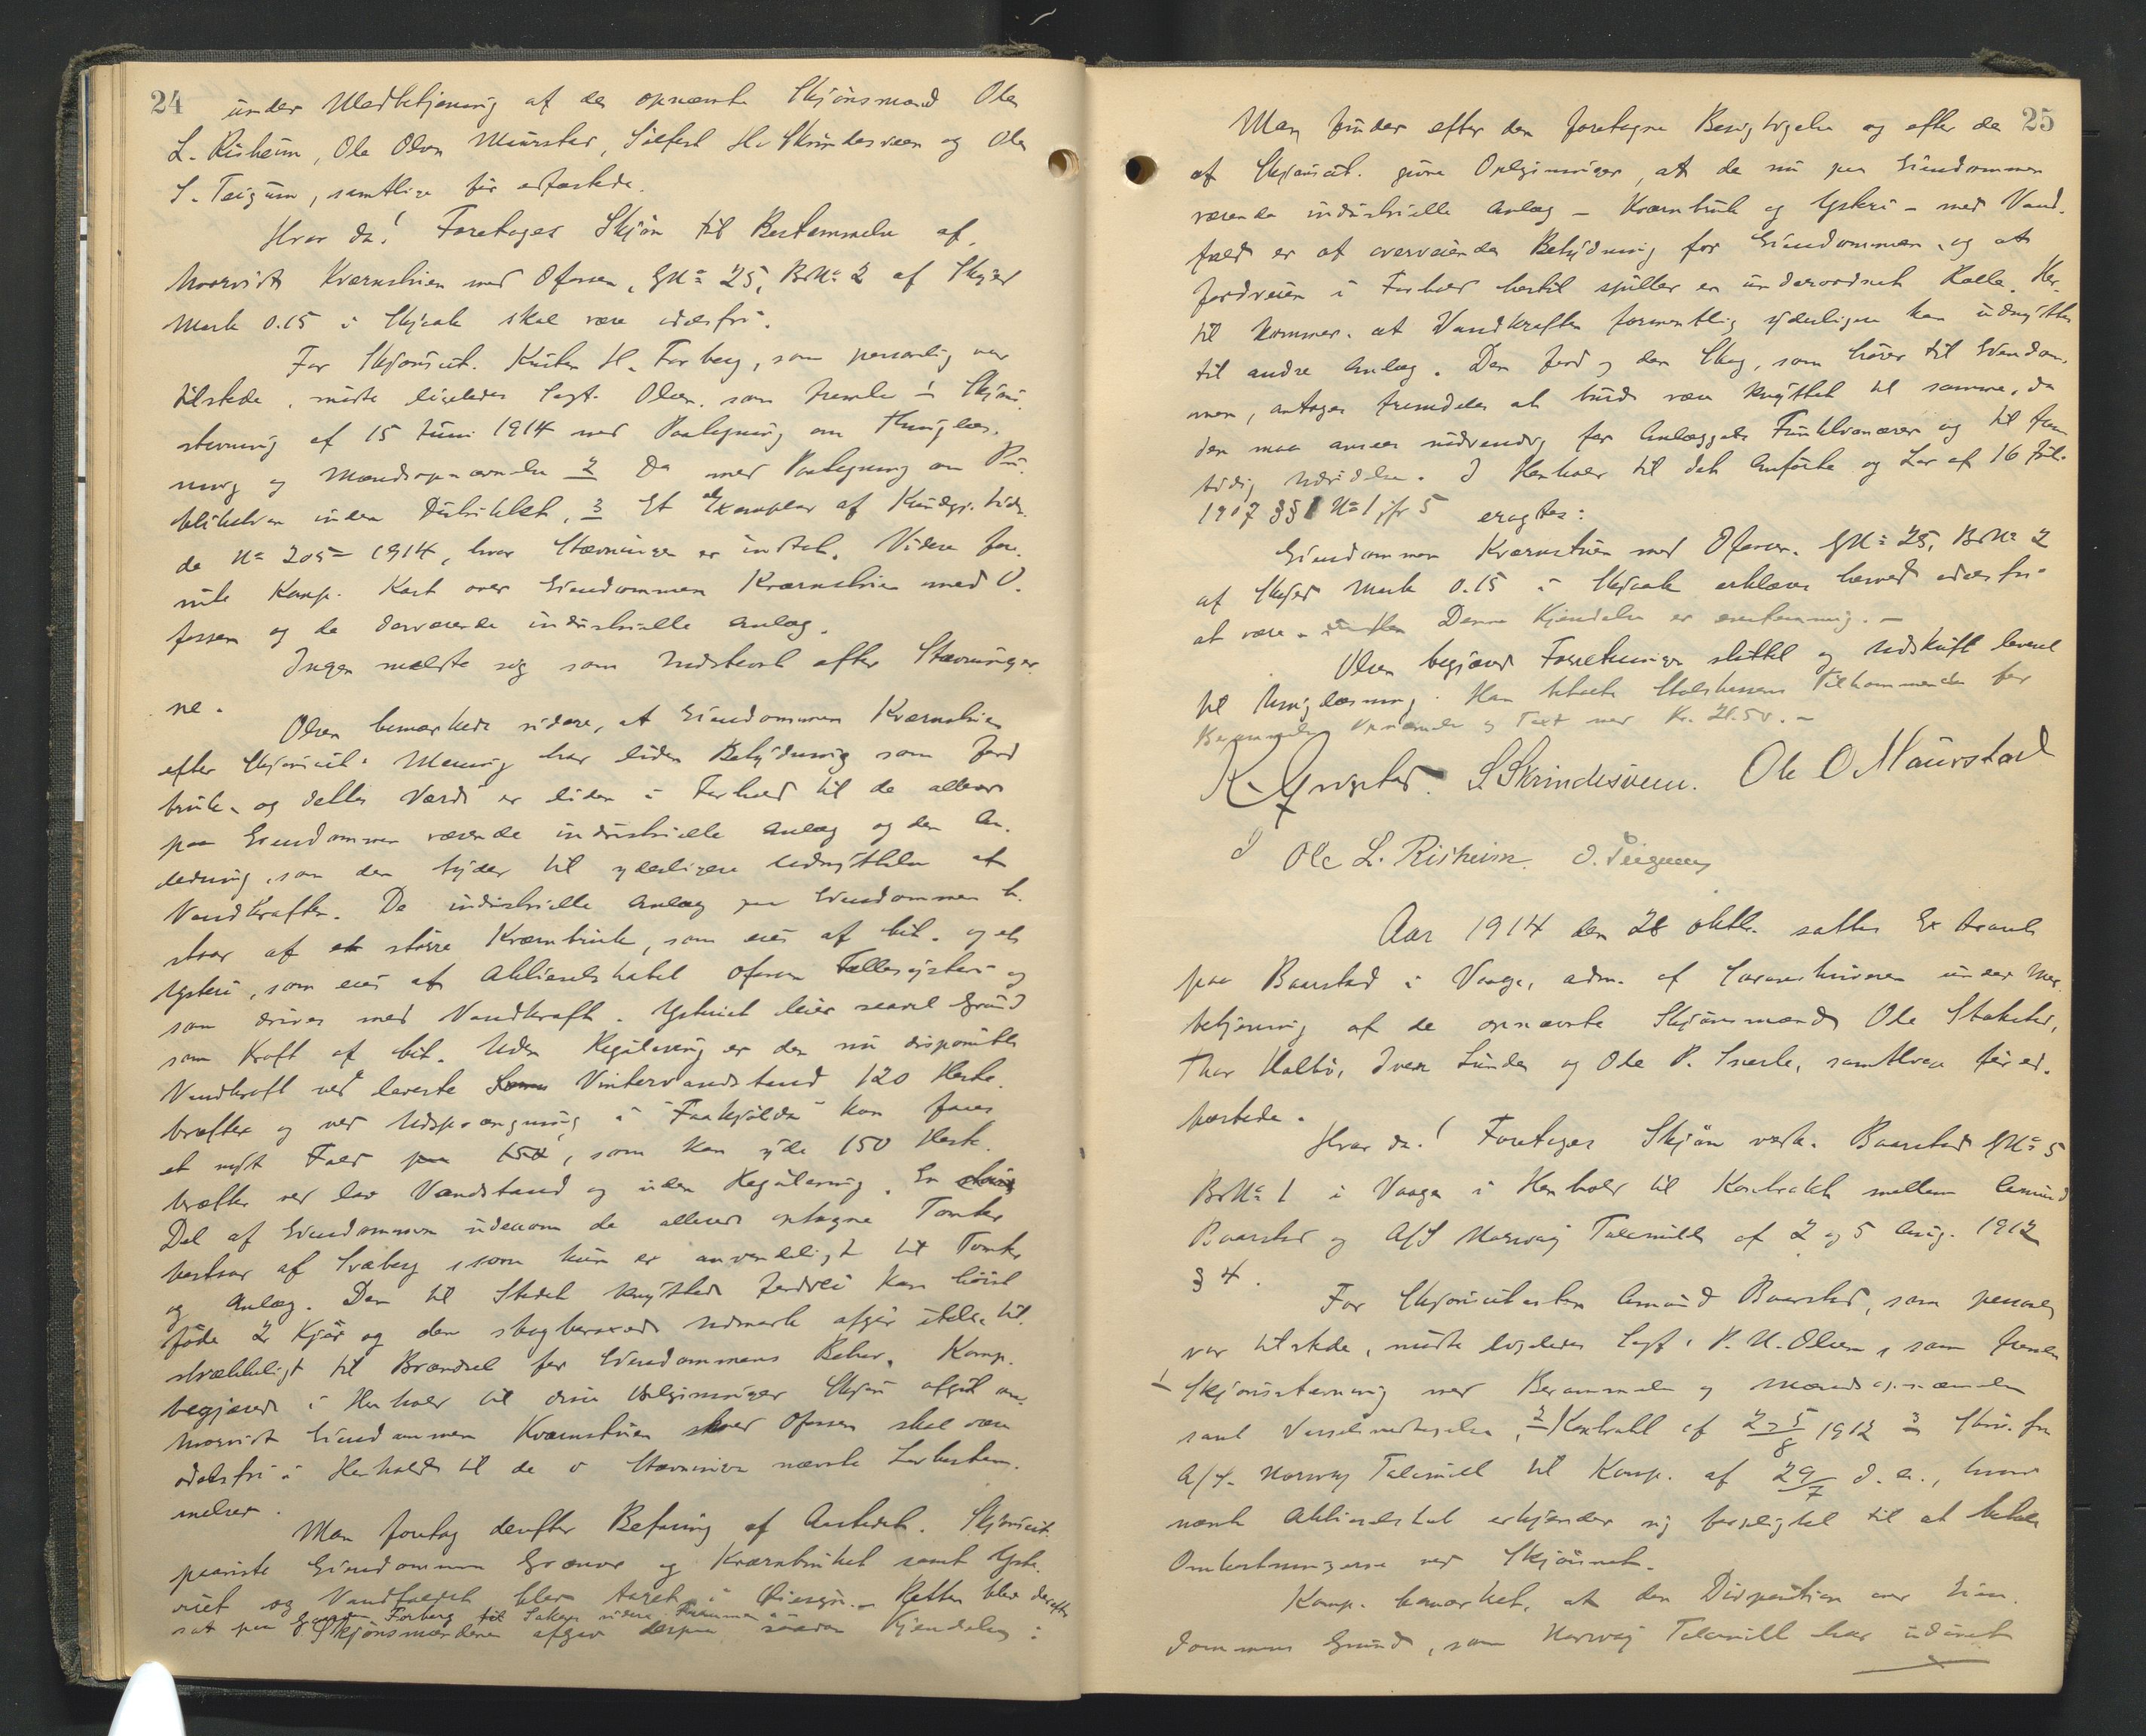 24
under Medbetjening af de opnævnte Skjønsmænd Ole
L. Risheim, Ole Olsen Maurstad, Silfest H. Skrindesveen og Ole
S. Teigum, samtlige før edfæstede.
Hvor da! Foretages Skjøn til Bestemmelse af,
hvorvidt Kværnstuen med Ofossen, GN= 25, BrN= 2 af Skyld
Mark 0.15 i Skjaak skal være odelsfri.
For Skjønscit. H. Forberg, som personlig var
tilstede, mødte ligeledes Sagf. Olsen, som fremla 1 Skjøns-
stevning af 15 Juni 1914 med Paategning om Thinglæs-
ning og Mændsopnævnelse 2 Do med Paategning om Pu-
blikation inden Distriktet, 3 Et Exemplar af Kundgj. tiden-
de N= 205 = 1914, hvor Stævningen er indtat. Videre frem-
Komp. Kart over Eiendommen Kværnstuen med O-
fossen og de derværende industrielle Anlæg.
Ingen meldte sig som Indstevnt efter Stævninger-
ne.
Olsen bemærkede videre, at Eiendommen Kværnstuen
efter Skjønscit. Mening har liden Betydning som Jord-
bruk, og dettes Værdi er liden i Forhold til de allerede
paa Eiendommen værende industrielle Anlæg og den An-
ledning, som den byder til yderligere Udnyttelse af
Vandkraften. De industrielle Anlæg paa Eiendommen be-
staar af et større Kværnbruk, som eies af Cit. og et
Ysteri, som eies af Aktieselskabet Ofossen Fællesysteri og
som drives med Vandkraft. Ysteriet leier saavel Grund
som Kraft af Cit. Uden Regulering er den nu disponible
Vandkraft ved laveste Vintervandstand 120 Heste-
kræfter og ved Udsprængning i "Faakjølda" kan faaes
et nyt Fald, som kan yde 150 Heste-
kræfter ved lav Vandstand og uden Regulering. En
Del af Eiendommen udenom de allerede optagne Tomter
bestaar af Svaberg, som kun er anvendeligt til Tomter
og Anlæg. Den til Stedet knyttede Jordvei kan høist
føde 2 Kjør og den skogbevoxede Udmark afgir ikke til-
strækkeligt til Brændsel for Eiendommens Behov. Komp.
begjærede i Henhold til disse Oplysninger Skjøn afgit om,
hvorvidt Eiendommen Kværnstuen med Ofossen skal være
odelsfri i Henhold til de i Stævningen nævnte Lovbestem-
melser.
Man foretog derefter Befaring af Aastedet. Skjønscit.
paaviste Eiendommens Grænser og Kværnbruket samt Yste-
riet og Vandfaldet blev taget i Øiesyn. Retten blev derefter
sat paa Forberg til Sakens videre Fremme.
Skjønsmændene afgav derpaa saadan Kjendelse:
25
Man finder efter den foretagne Besigtigelse og efter de
af Skjønscit. givne Oplysninger, at de nu paa Eiendommen
værende industrielle Anlæg – Kværnbruk og Ysteri – med Vand-
fald er af overveiende Betydning for Eiendommen, og at
Jordveien i Forhold hertil spiller en underordnet Rolle. Her-
til kommer, at Vandkraften formentlig yderligere kan udnyttes
til andre Anlæg. Den Jord og den Skog, som hører til Eiendom-
men, antages fremdeles at burde være knyttet til samme, da
den maa ansees nødvendig for Anlæggets Funktionærer og til frem-
tidig Udvidelse. I Henhold til det Anførte og Lov af 16 Juli
1907 §§ 1 N= 1 jfr 5 eragtes:
Eiendommen Kværnstuen med Ofossen, GN= 25, BrN= 2
af Skyld Mark 0.15 i Skjaak erklæres herved odelsfri
at være. Denne Kjendelse er enstemmig. –
Olsen begjæred Forretningen sluttet og Udskrift leveret
til Thinglæsning. Han betalte Statskassens Tilkommende for
Berammelse, Opnævnelse og Taxt med Kr. 21.50. –
S Skrindesveen. Ole O Maurstad
Ole L. Risheim. O. Teigum
Aar 1914 den 28 oktbr. sattes Extraret
paa Baarstad i Vaage, adm. af Sorenskriveren under Med-
betjening af de opnævnte Skjønsmænd Ole Stokstad,
Thor Holbø, Iver Sunde og Ole P. Snerle, samtlige før ed-
fæstede.
Hvor da! Foretages Skjøn vedk. Baarstad GN= 5
BrN= 1 i Vaage i Henhold til Kontrakt mellem Amund
Baarstad og A/S Norway Talcmills af 2 og 5 Aug. 1912
§ 4.
For Skjønscitanten Amund Baarstad, som personlig
var tilstede, mødte ligeledes Sagf. P. N. Olsen, som fremla
1 Skjønsstevning med Berammelse og Mændsopnævnelse
samt Varselsvedtagelse, 2 Kontrakt af 2 og 5/8 1912 3 Skriv. fra
A/S. Norway Talcmill til Komp. af 29/7 d. a., hvori
nævnte Aktieselskab erkjender sig forpligtet til at betale
Omkostningerne ved Skjønnet.
Komp. bemærket, at den Disposition over Eien-
dommens Grund, som Norway Talcmill har udøvet